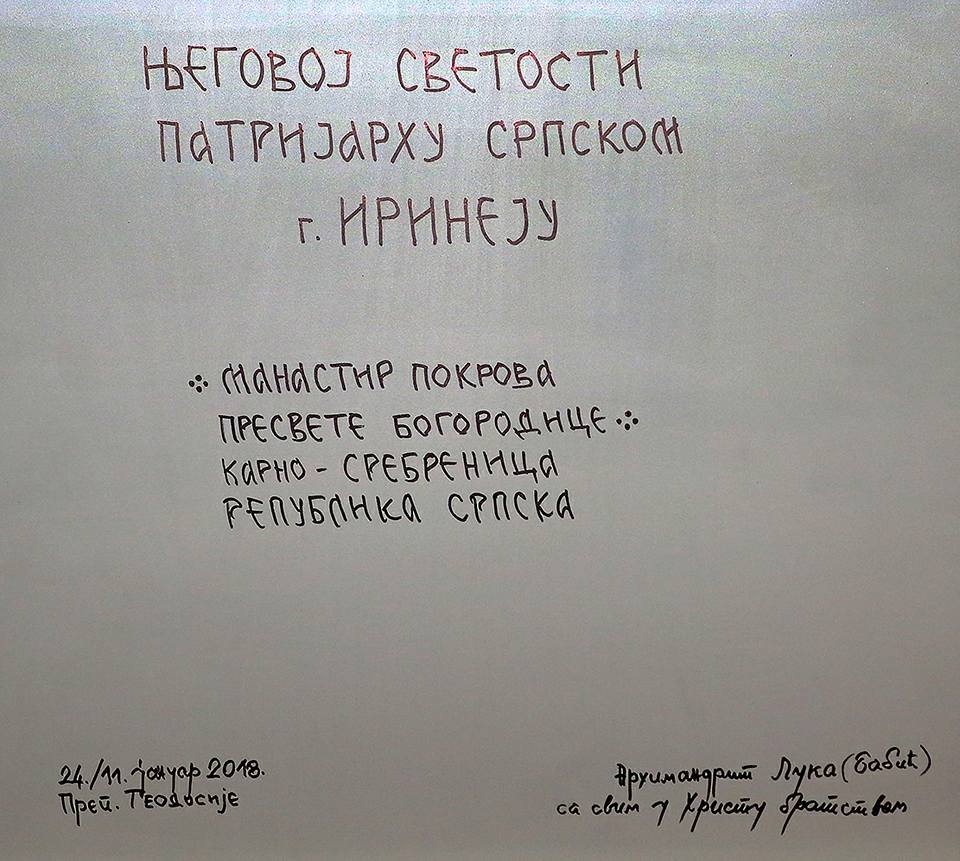 ЊЕГОВОЈ СВЕТОСТИ
ПАТРИЈАРХУ СРПСКОМ
г. ИРИНЕЈУ
⁘ МАНАСТИР ПОКРОВА
ПРЕСВЕТЕ БОГОРОДИЦЕ ⁘
КАРНО - СРЕБРЕНИЦА
РЕПУБЛИКА СРПСКА
24./11. јануар 2018.
Преп. Теодосије
Архимандрит Лука (Бабић)
са свим у Христу братством